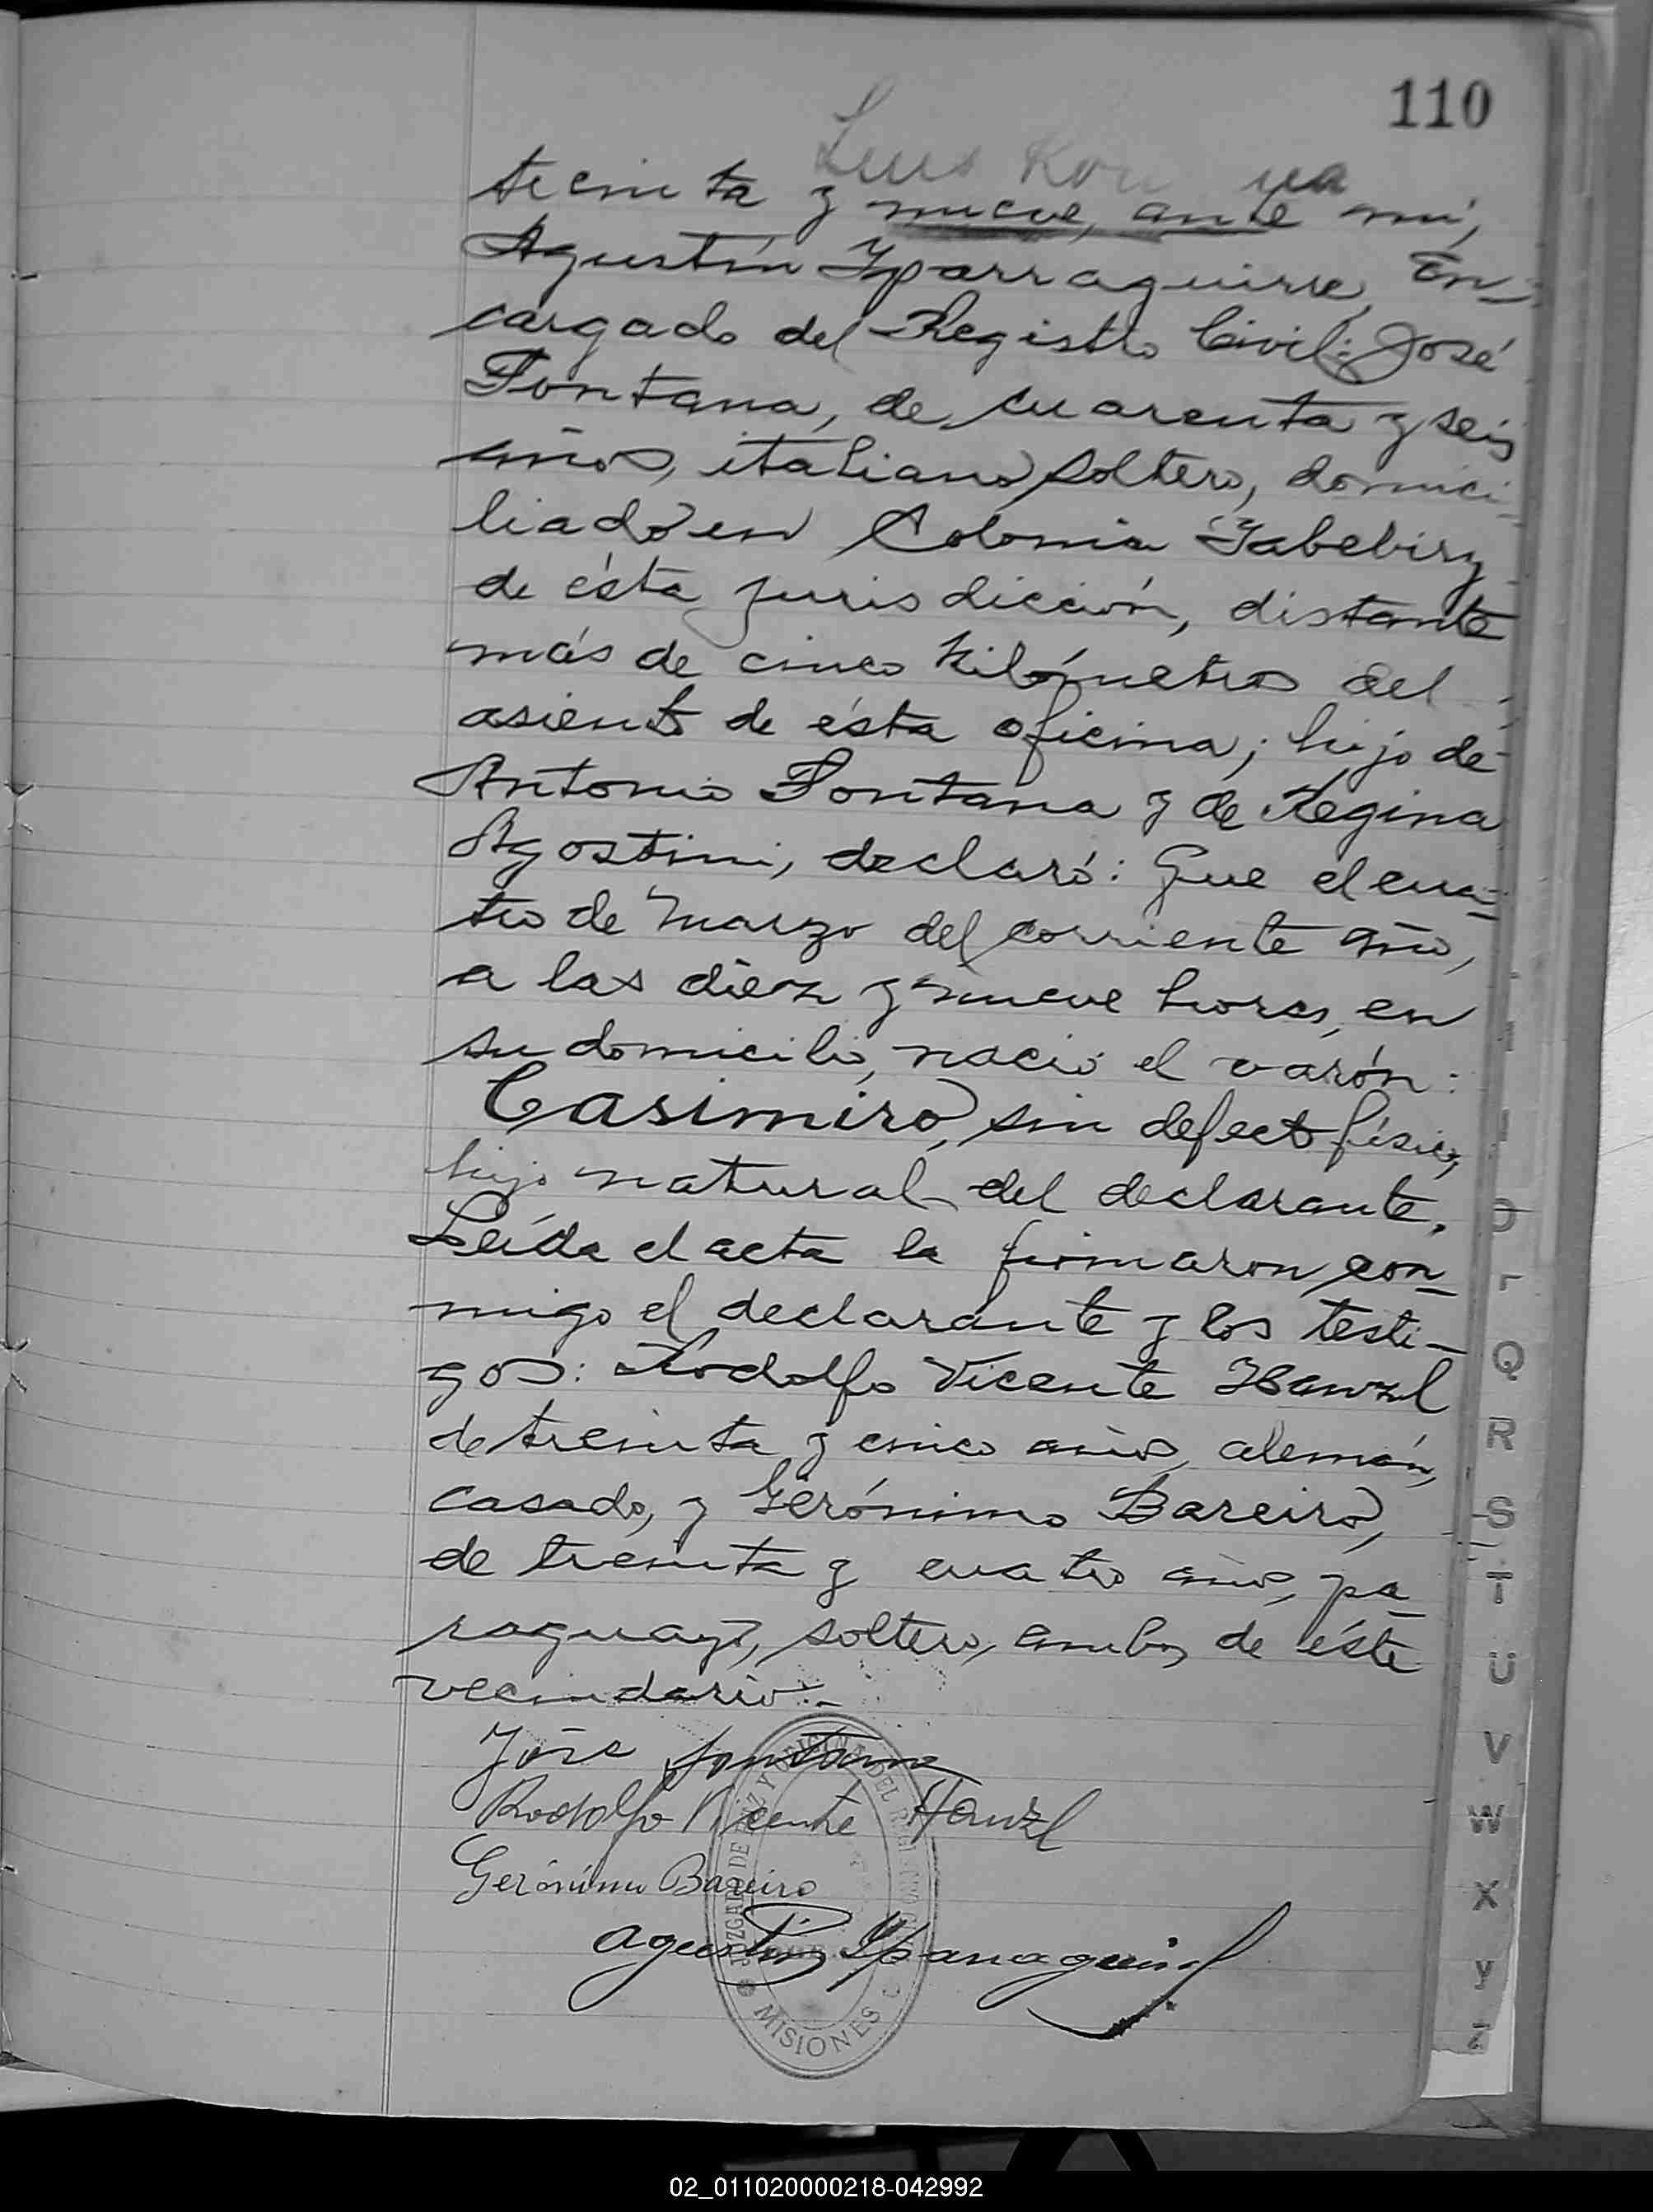 110
Luis
treinta y nueve, ante mí,
Agustín Yparraguirre, En-
cargado del Registro Civil: José
Fontana, de cuarenta y seis
años, italiano, soltero, domici-
liado en Colonia Yabebiry
de ésta jurisdicción, distante
más de cinco kilómetros del
asiento de ésta oficina; hijo de
Antonio Fontana y de Regina
Agostini, declaró: Que el cua-
tro de Marzo del corriente año,
a las diez y nueve horas, en
su domicilio, nació el varón:
Casimiro, sin defecto físico,
hijo natural del declarante.
Leída el acta la firmaron con-
migo el declarante y los testi-
gos: Rodolfo Vicente Hanzl
de treinta y cinco años, alemán,
casado, y Gerónimo Bareiro,
de treinta y cuatro años, pa-
raguayo, soltero, ambos de éste
vecindario.-
José Fontana
Rodolfo Vicente Hanzl
Gerónimo Bareiro
Agustín Yparraguirre
JUZGADO DE PAZ Y OFICINA DEL
MISIONES
Q
R
S
T
U
V
W
X
Y
Z
02_011020000218-042992